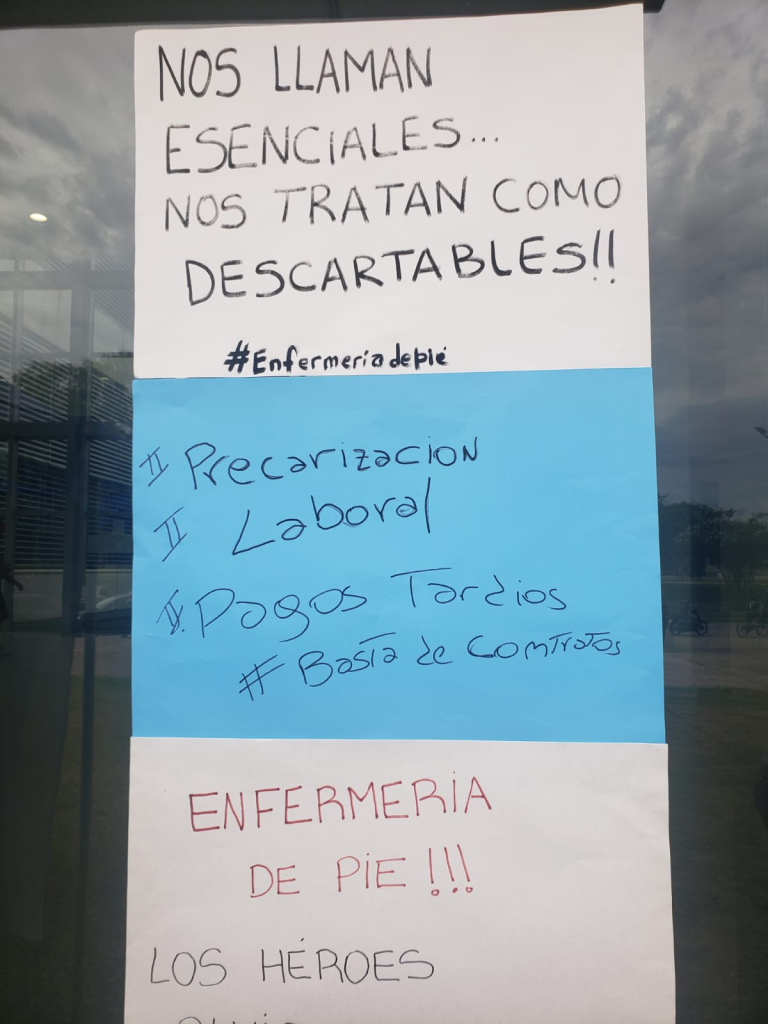 NOS LLAMAN
ESENCIALES...
NOS TRATAN COMO
DESCARTABLES!!
#Enfermeriadepié
Precarizacion
Laboral
Pagos Tardios
# Basta de Contratos
ENFERMERIA
DE PIE!!!
LOS HÉROES